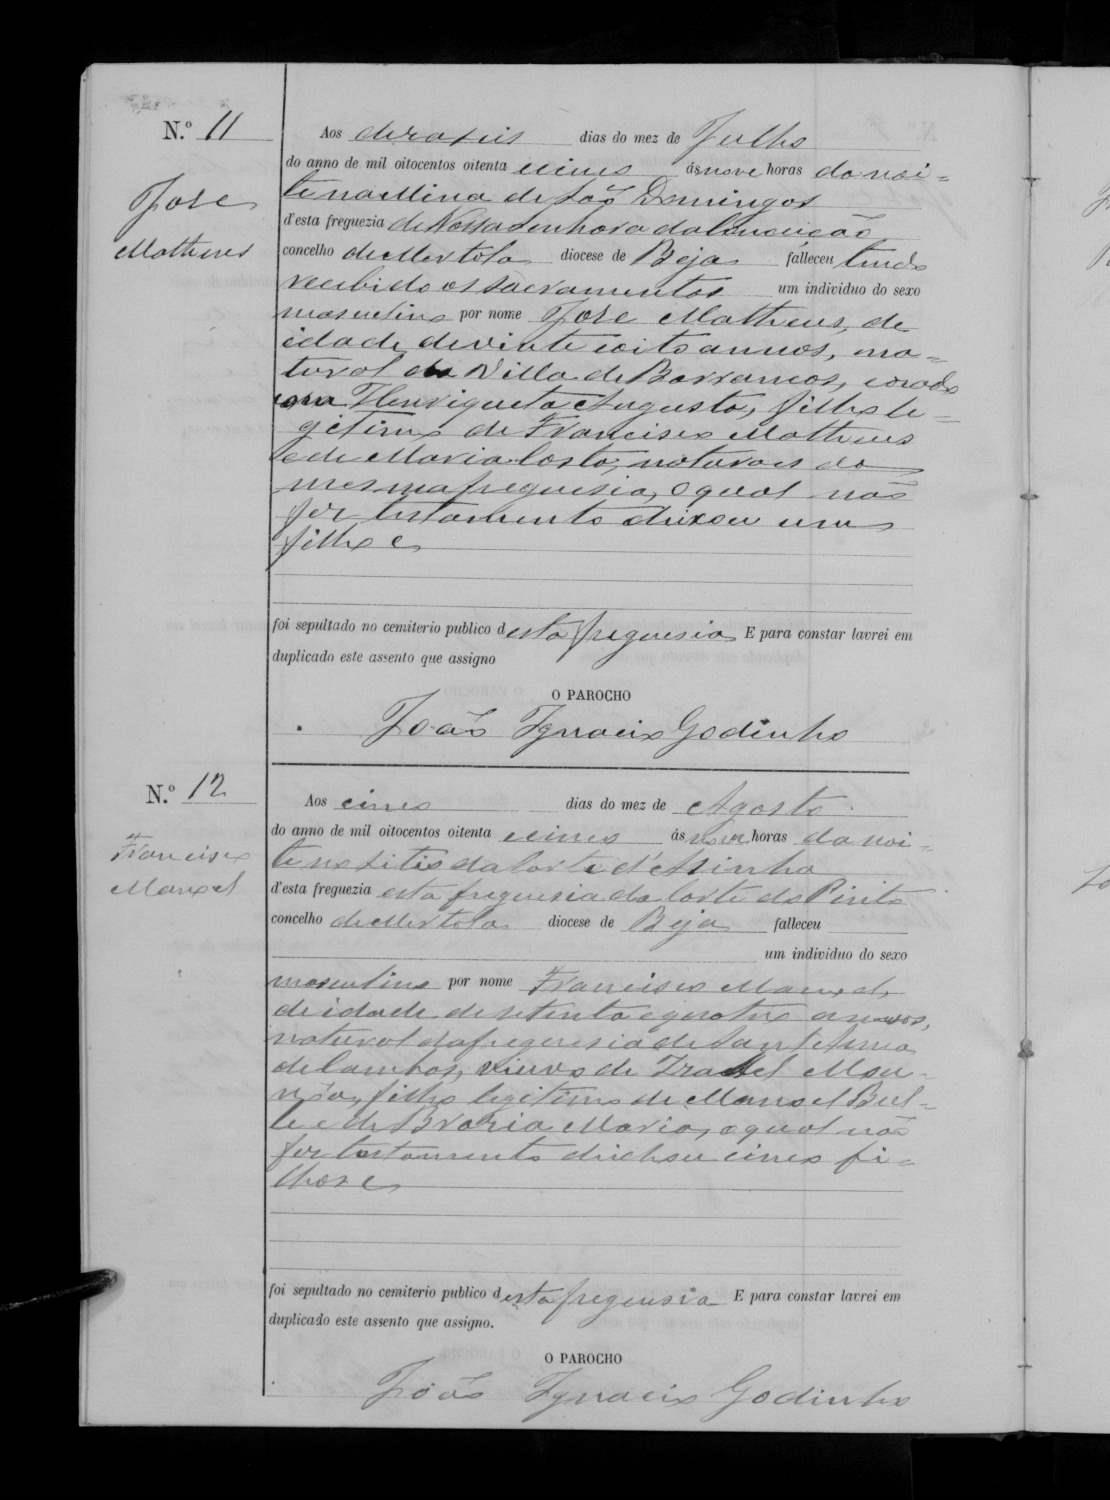 N.º 11
Jose
Matheus
Aos deraseis dias do mez de Julho
do anno de mil oitocentos oitenta ecinco ás nove horas da noi=
te na Mina de São Domingos
d'esta freguezia de Nossa Senhora da Conceição
concelho de Mertola diocese de Beja falleceu tendo
recebido os sacramentos um individuo do sexo
masculino por nome Jose Matheus, de
idade de vinte eoito annos, na=
tural da Villa de Barrancos, casado
com Henriqueta Augusta, filho le=
gitimo de Francisco Matheus
e de Maria Costa, naturaes da
mesma freguesia, o qual não
fez testamento deixou um
filho e
foi sepultado no cemiterio publico desta freguesia E para constar lavrei em
duplicado este assento que assigno
O PAROCHO
João Ignacio Godinho
N.º 12
Francisco
Manoel
Aos cinco dias do mez de Agosto
do anno de mil oitocentos oitenta ecinco ás nove horas da noi=
te no sitio da Corte d'Asinha
d'esta freguezia esta freguesia da Corte do Pinto
concelho de Mertola diocese de Beja falleceu
um individuo do sexo
masculino por nome Francisco Manoel,
de idade de setenta equatro annos,
natural da freguesia de Sant'Anna
de Cambas, viuvo de Izabel
filho legitimo de Manoel
e de Brazia Maria, o qual não
fez testamento deichou cinco fi=
lhos e
foi sepultado no cemiterio publico desta freguesia E para constar lavrei em
duplicado este assento que assigno.
O PAROCHO
João Ignacio Godinho